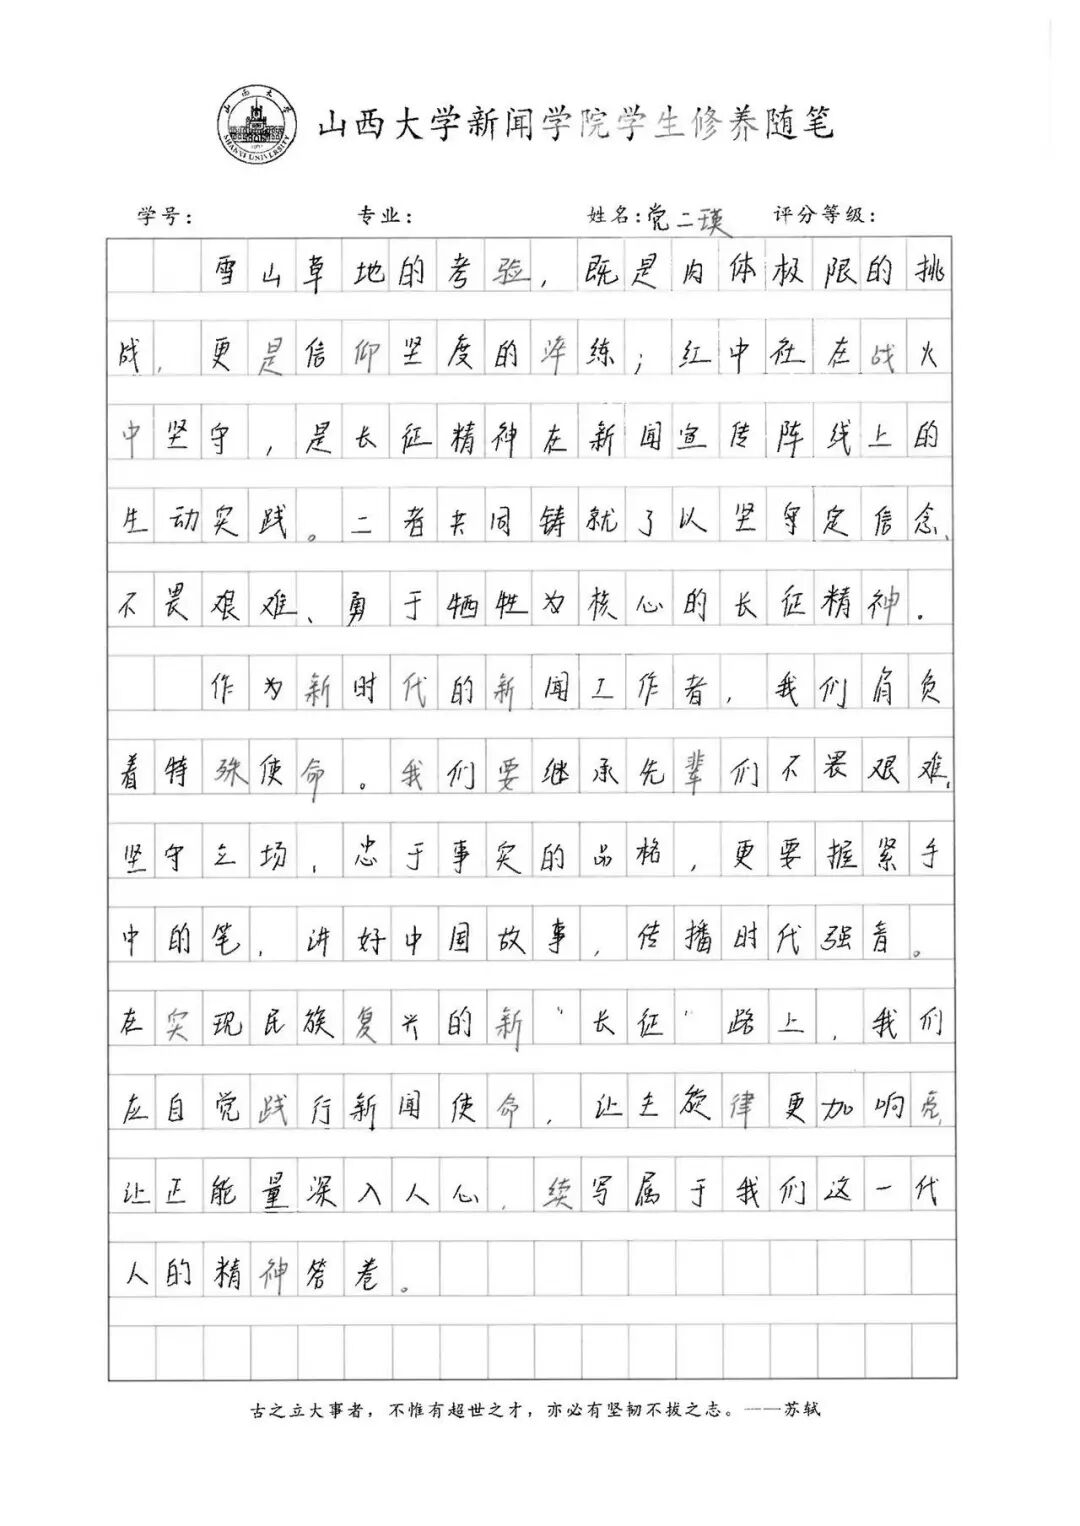 山西大学
SHANXI UNIVERSITY
山西大学新闻学院学生修养随笔
学号： 专业： 姓名：党二瑛 评分等级：
雪山草地的考验，既是肉体极限的挑
战，更是信仰坚度的淬练；红中社在战火
中坚守，是长征精神在新闻宣传阵线上的
生动实践。二者共同铸就了以坚守定信念、
不畏艰难、勇于牺牲为核心的长征精神.
作为新时代的新闻工作者，我们肩负
着特殊使命。我们要继承先辈们不畏艰难、
坚守立场，忠于事实的品格，更要握紧手
中的笔，讲好中国故事，传播时代强音。
在实现民族复兴的新“长征”路上，我们
应自觉践行新闻使命，让主旋律更加响亮，
让正能量深入人心，续写属于我们这一代
人的精神答卷。
古之立大事者，不惟有超世之才，亦必有坚韧不拔之志。——苏轼